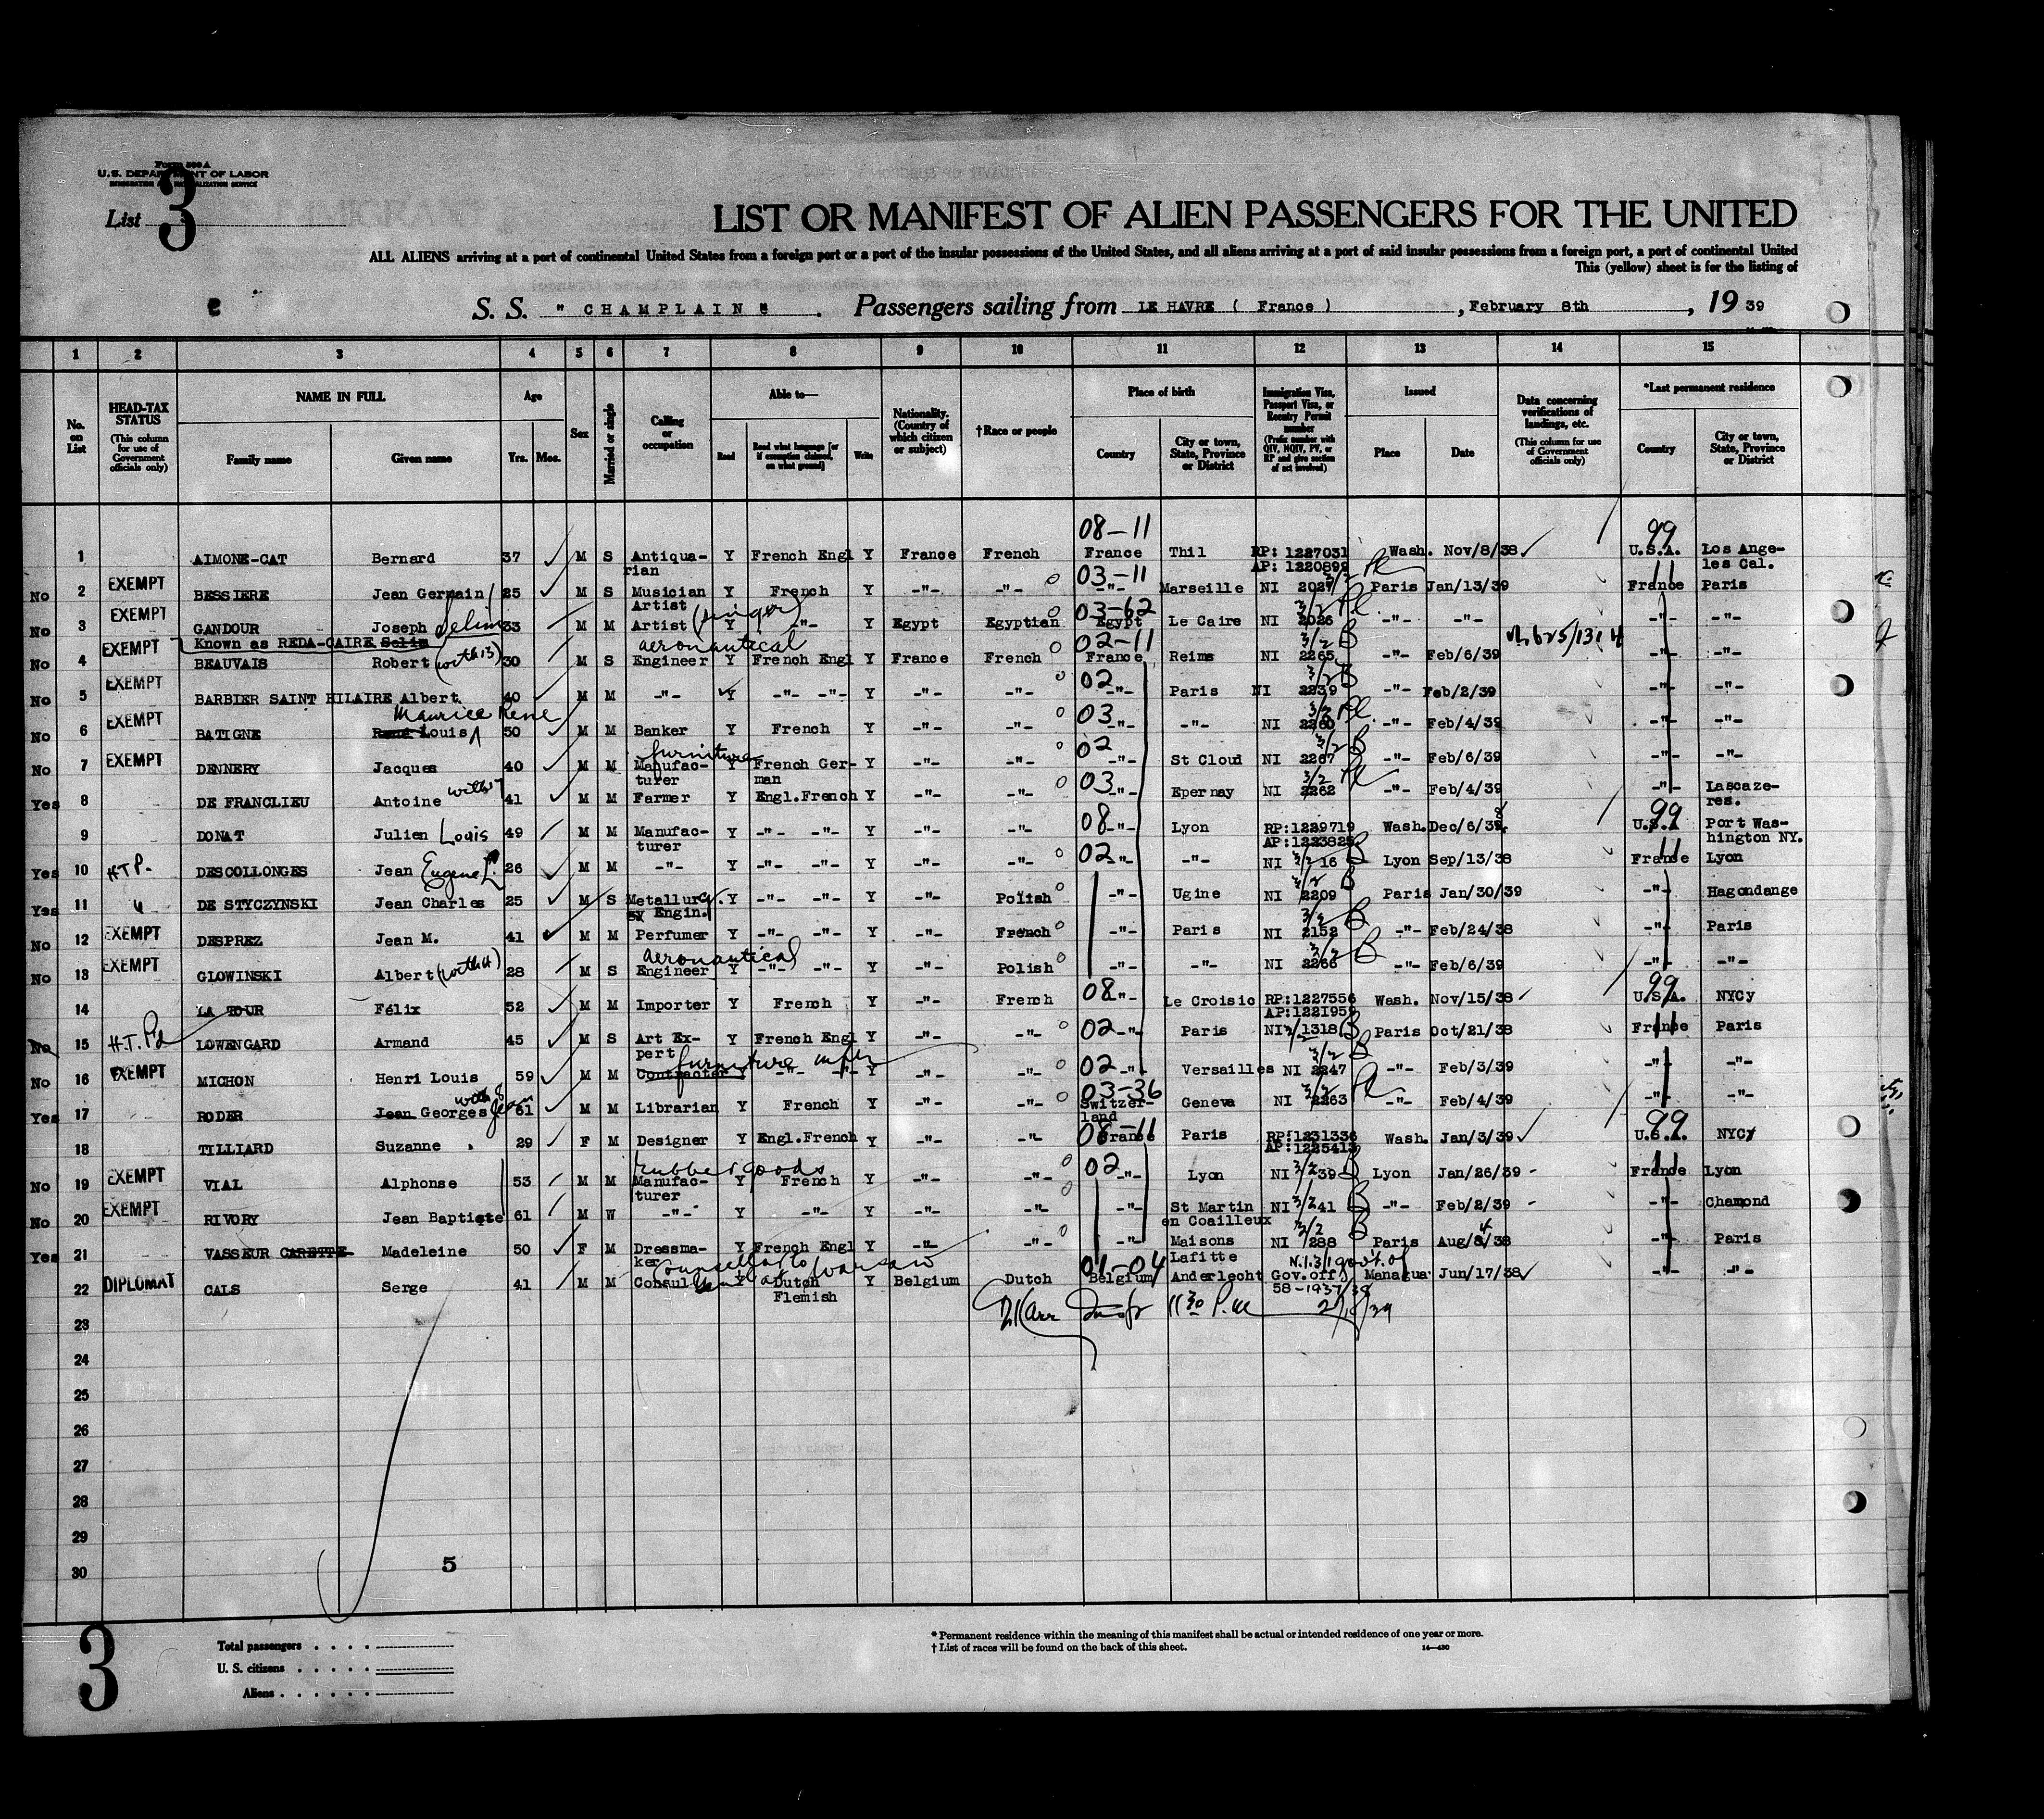 Form 500 A
U.S. DEPARTMENT OF LABOR
IMMIGRATION AND NATURALIZATION SERVICE
List 3
LIST OR MANIFEST OF ALIEN PASSENGERS FOR THE UNITED
ALL ALIENS arriving at a port of continental United States from a foreign port or a port of the insular possessions of the United States, and all aliens arriving at a port of said insular possessions from a foreign port, a port of continental United
This (yellow) sheet is for the listing of
S. S. "CHAMPLAIN" Passengers sailing from LE HAVRE ( France ), February 8th, 19 39
1 2 3 4 5 6 7 8 9 10 11 12 13 14 15
No. on List
HEAD-TAX STATUS (This column for use of Government officials only)
NAME IN FULL Family name Given name
Age Yrs. Mos.
Sex
Married or single
Calling or occupation
Able to— Read Read what language [or if exemption claimed, on what ground] Write
Nationality. (Country of which citizen or subject)
†Race or people
Place of birth Country City or town, State, Province or District
Immigration Visa, Passport Visa, or Reentry Permit number (Prefix number with QIV, NQIV, PV, or RP and give section of act involved)
Issued Place Date
Data concerning verifications of landings, etc. (This column for use of Government officials only)
*Last permanent residence Country City or town, State, Province or District
08-11 99
1 AIMONE-CAT Bernard 37 M S Antiquarian Y French Engl Y France French France Thil RP: 1227031 AP: 1220899 Wash. Nov/8/38 U.S.A. Los Angeles Cal.
03-11 11
No 2 EXEMPT BESSIERE Jean Germain 25 M S Musician Artist Y French Y -"- -"- -"- Marseille NI 2027 Paris Jan/13/39 France Paris
03-62
No 3 EXEMPT GANDOUR Joseph Selim 33 M M Artist (singer) Y -"- Y Egypt Egyptian Egypt Le Caire NI 2026 -"- -"- -"- -"-
Known as REDA-CAIRE Selim
02-11
No 4 EXEMPT BEAUVAIS Robert (with 13) 30 M S aeronautical Engineer Y French Engl Y France French France Reims NI 2265 -"- Feb/6/39 -"- -"-
No 5 EXEMPT BARBIER SAINT HILAIRE Albert 40 M M -"- Y -"- -"- Y -"- -"- 02 -"- Paris NI 2239 -"- Feb/2/39 -"- -"-
Maurice Rene
No 6 EXEMPT BATIGNE René Louis 50 M M Banker Y French Y -"- -"- 03 -"- -"- NI 2260 -"- Feb/4/39 -"- -"-
No 7 EXEMPT DENNERY Jacques 40 M M furniture Manufacturer Y French German Y -"- -"- 02 -"- St Cloud NI 2267 -"- Feb/6/39 -"- -"-
Yes 8 DE FRANCLIEU Antoine 41 M M Farmer Y Engl.French Y -"- -"- 03 -"- Epernay NI 2262 -"- Feb/4/39 -"- Lascazeres.
9 DONAT Julien Louis 49 M M Manufacturer Y -"- -"- Y -"- -"- 08 -"- Lyon RP:1229719 AP:1223825 Wash. Dec/6/38 99 U.S.A Port Washington NY.
Yes 10 H.T.P. DESCOLLONGES Jean Eugene 26 M M -"- Y -"- -"- Y -"- -"- 02 -"- -"- NI 16 Lyon Sep/13/38 11 France Lyon
Yes 11 " DE STYCZYNSKI Jean Charles 25 M S Metallurgy Engin. Y -"- -"- Y -"- Polish -"- Ugine NI 2209 Paris Jan/30/39 -"- Hagondange
No 12 EXEMPT DESPREZ Jean M. 41 M M Perfumer Y -"- -"- Y -"- French -"- Paris NI 2152 -"- Feb/24/38 -"- Paris
No 13 EXEMPT GLOWINSKI Albert (with 4) 28 M S aeronautical Engineer Y -"- -"- Y -"- Polish -"- -"- NI 2266 -"- Feb/6/39 -"- -"-
14 LA TOUR Félix 52 M M Importer Y French Y -"- French 08 -"- Le Croisic RP:1227556 AP:1221959 Wash. Nov/15/38 99 U.S.A. NYCy
No 15 H.T. Pd LOWENGARD Armand 45 M S Art Expert Y French Engl Y -"- -"- 02 -"- Paris NI 1318 Paris Oct/21/38 11 France Paris
No 16 EXEMPT MICHON Henri Louis 59 M M Contracter furniture mfr Y -"- -"- Y -"- -"- 02 -"- Versailles NI 2247 -"- Feb/3/39 -"- -"-
Yes 17 RODER Jean Georges Jean with 8 61 M M Librarian Y French Y -"- -"- 03-36 Switzerland Geneva NI 2263 -"- Feb/4/39 -"- -"-
18 TILLIARD Suzanne 29 F M Designer Y Engl.French Y -"- -"- 08-11 France Paris RP:1231336 AP:1225413 Wash. Jan/3/39 99 U.S.A. NYCy
No 19 EXEMPT VIAL Alphonse 53 M M rubber goods Manufacturer Y French Y -"- -"- 02 -"- Lyon NI 39 Lyon Jan/26/39 11 France Lyon
No 20 EXEMPT RIVORY Jean Baptiste 61 M W -"- Y -"- Y -"- -"- -"- St Martin en Coailleux NI 41 -"- Feb/2/39 -"- Chamond
Yes 21 VASSEUR CARETTE Madeleine 50 F M Dressmaker Y French Engl Y -"- -"- -"- Maisons Lafitte NI 288 Paris Aug/4/38 -"- Paris
22 DIPLOMAT CALS Serge 41 M M Consul Counsellor to Warsaw Y Dutch Flemish Y Belgium Dutch 01-04 Belgium Anderlecht Gov.off. 58-1937/38 Managua Jun/17/38 -"- -"-
23
24
25
26
27
28
29
30
5
3
Total passengers
U. S. citizens
Aliens
* Permanent residence within the meaning of this manifest shall be actual or intended residence of one year or more.
† List of races will be found on the back of this sheet.
14—430